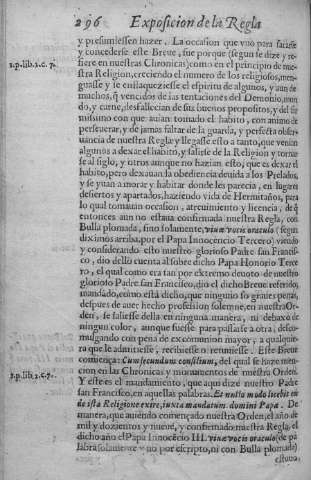 296 Exposicion de la Regla
y presumiessen hazer. La occasion que vuo para facarse
y concederse este Breve, fue porque (segun se dize y re-
1.p.lib.2.c.7. fiere en nuestras Chronicas) como en el principio de nue-
stra Religion, creciendo el numero de los religiosos, men-
guasse y se enflaqueziesse el espiritu de algunos, y aun de
muchos, q̃ vencidos de las tentaciones del Demonio, mun
do, y carne, desfallecian de sus buenos propositos, y del san-
tissimo con que auian tomado el habito, con animo de
perseuerar, y de jamas faltar de la guarda, y perfecta obser-
uancia de nuestra Regla y llegasse esto a tanto, que venian
algunos a dexar el habito, y salirse de la Religion y tornar
se al siglo, y otros aunque no hazian esto, que es dexar el
habito, pero dexauan la obediencia deuida a los Prelados,
y se yuan a morar y habitar donde les parecia, en lugares
desiertos y apartados, haziendo vida de Hermitaños, para
lo qual tomauan occasion, atreuimiento y licencia, de q̃
entonces aun no estaua confirmada nuestra Regla, con
Bulla plomada, sino solamente, viuæ vocis oraculo (segun
diximos arriba, por el Papa Innocencio Tercero) viendo
y considerando esto nuestro glorioso Padre san Francis-
co, dio dello cuenta al sobre dicho Papa Honorio Terce
ro, el qual como era tan por extremo deuoto de nuestro
glorioso Padre san Francisco, dio el dicho Breue referido,
mandado, como està dicho, que ninguno so graues penas,
despues de auer hecho profession solemne, en nuestra Or-
den, se saliesse della en ninguna manera, ni debaxo de
ningun color, aunque fuesse para passarse a otra, desco-
mulgando con pena de excomunion mayor, a qualquie-
ra que le admitiesse, recibiesse o retuuiesse. Este Breue
comiença: Cum secundum consilium, del qual se haze men-
cion en las Chronicas y monumentos de nuestra Orden.
1.p.lib.2.c.7. Y este es el mandamiento, que aqui dize nuestro Padre
san Francisco, en aquellas palabras. Et nullo modo licebit eis
de ista Religione exire, iuxta mandatum domini Papa. De
manera, que auiendo començado nuestra Orden, el año de
mil y dozientos y nueue, y confirmado nuestra Regla, el
dicho año el Papa Innocēcio III. viuæ vocis oraculo (de pa
labra solamente y no por escripto, ni con Bulla plomada)
estaua,